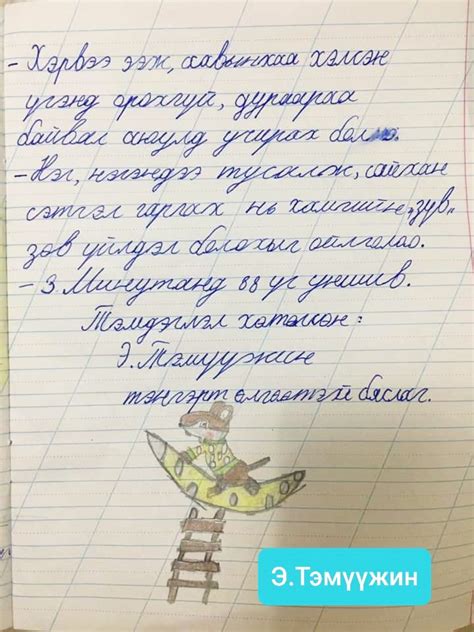 - Хэрвээ ээж, аавынхаа хэлсэн
үгэнд орохгүй, дураараа
байвал аюулд учирах болно.
- Нэг, нэгэндээ тусалж, сайхан
сэтгэл гаргах нь хамгийн "зүв"
зөв үйлдэл болохыг ойлголоо.
- 3 Минутанд 88 үг уншив.
Тэмдэглэл хөтөлсөн:
Э.Тэмүүжин
тэнгэрт өлгөөтэй бяслаг.
Э.Тэмүүжин